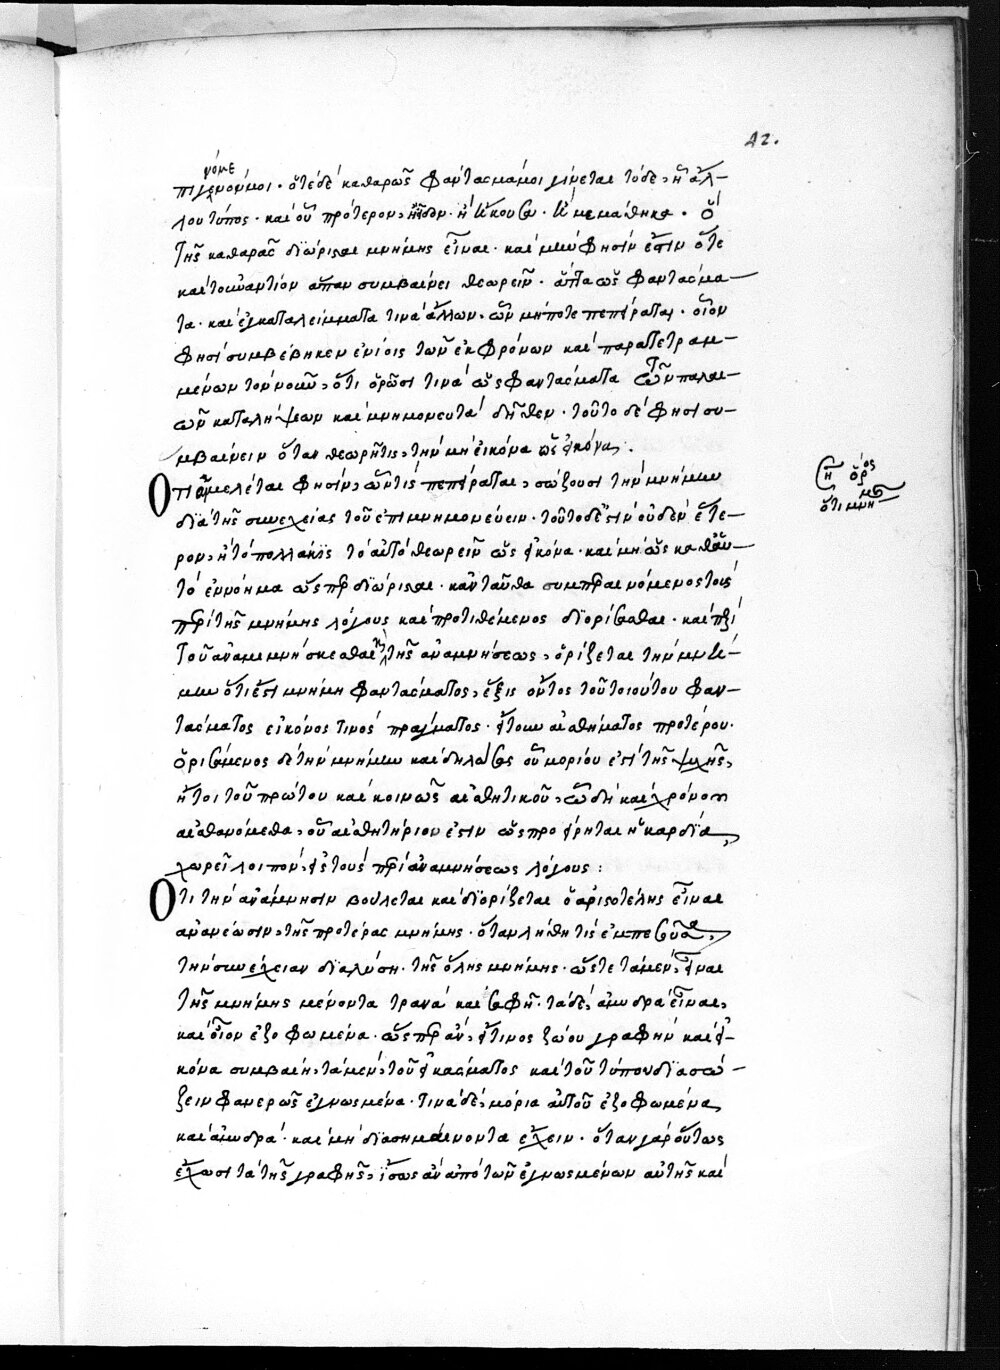 42.
νόμε
πιγενονμοι. ὅτε δὲ καθαρῶς φαντάσμα μοι γίνεται τόδε, ἢ ἄλ-
λου τύπος. καὶ οὗ πρότερον, ἢ ἤκουσα. ἢ μεμάθηκα. ὃ
τῆς καθαρᾶς διώρισται μνήμης εἶναι. καὶ μὴν φησὶν ἔστιν ὅτε
καὶ τοὐναντίον ἅπαν συμβαίνει θεωρεῖν. ἅττα ὡς φαντάσμα-
τα. καὶ ἐγκαταλείμματα τινὰ ἄλλων. ὧν μήποτε πεπείραται. οἷον
φησὶ συμβέβηκεν ἐνίοις τῶν ἐκφρόνων καὶ παρατετραμ-
μένων τὸν νοῦν, ὅτι ὁρῶσι τινὰ ὡς φαντάσματα τῶν παλαι-
ῶν καταλήψεων καὶ μνημονευτὰ δῆθεν. τοῦτο δέ φησι συ-
μβαίνειν ὅταν θεωρῇ τις, τὴν μὴ εἰκόνα ὡς εἰκόνα.
Ὅτι αἱ μελέται φησὶν, ὧν τις πεπείραται, σώζουσι τὴν μνήμην
διὰ τῆς συνεχείας τοῦ ἐπιμνημονεύειν. τοῦτο δέ ἐστιν οὐδὲν ἕτε-
ρον, ἢ τὸ πολλάκις τὸ αὐτὸ θεωρεῖν ὡς εἰκόνα. καὶ μὴ ὡς καθ' αὑ-
τὸ ἐννόημα ὥσπερ διώρισται. κἀνταῦθα συμπεραινόμενος τοὺς
περὶ τῆς μνήμης λόγους καὶ προτιθέμενος διορίσασθαι. καὶ περὶ
τοῦ ἀναμιμνήσκεσθαι καὶ τῆς ἀναμνήσεως, ὁρίζεται τὴν μνή-
μην ὅτι ἐστὶ μνήμη φαντάσματος, ἕξις ὄντος τοῦ τοιούτου φαν-
τάσματος εἰκόνος τινὸς πράγματος. ἤτοι αἰσθήματος προτέρου.
ὁρισάμενος δὲ τὴν μνήμην καὶ δηλώσας οὗ μορίου ἐστὶ τῆς ψυχῆς,
ἤτοι τοῦ πρώτου καὶ κοινῶς αἰσθητικοῦ, ᾧ δὴ καὶ χρόνου
αἰσθανόμεθα, οὗ αἰσθητήριον ἐστιν ὡς προείρηται ἡ καρδία,
χωρεῖ λοιπὸν, εἰς τοὺς περὶ ἀναμνήσεως λόγους:
Ὅτι τὴν ἀνάμνησιν βούλεται καὶ διορίζεται ὁ ἀριστοτέλης εἶναι
ἀνανέωσιν, τῆς προτέρας μνήμης. ὅταν λήθη τις ἐμπεσοῦσα,
τὴν συνέχειαν διαλύση. τῆς ὅλης μνήμης. ὥστε τὰ μὲν, εἶναι
τῆς μνήμης μένοντα τρανὰ καὶ σαφῆ. τὰ δὲ, ἀμυδρὰ εἶναι,
καὶ οἷον ἐζοφωμένα. ὥσπερ ἂν, εἴ τινος ζώου γραφὴν καὶ εἰ-
κόνα συμβαίη, τὰ μὲν, τοῦ εἰκάσματος καὶ τοῦ τύπου διασώ-
ζειν φανερῶς ἐγνωσμένα. τινὰ δὲ, μόρια αὐτοῦ ἐζοφωμένα
καὶ ἀμυδρὰ. καὶ μὴ διασημαίνοντα ἔχειν. ὅταν γὰρ οὕτως
ἔχωσι τὰ τῆς γραφῆς, ἴσως ἂν ἀπὸ τῶν ἐγνωσμένων αὐτῆς καὶ